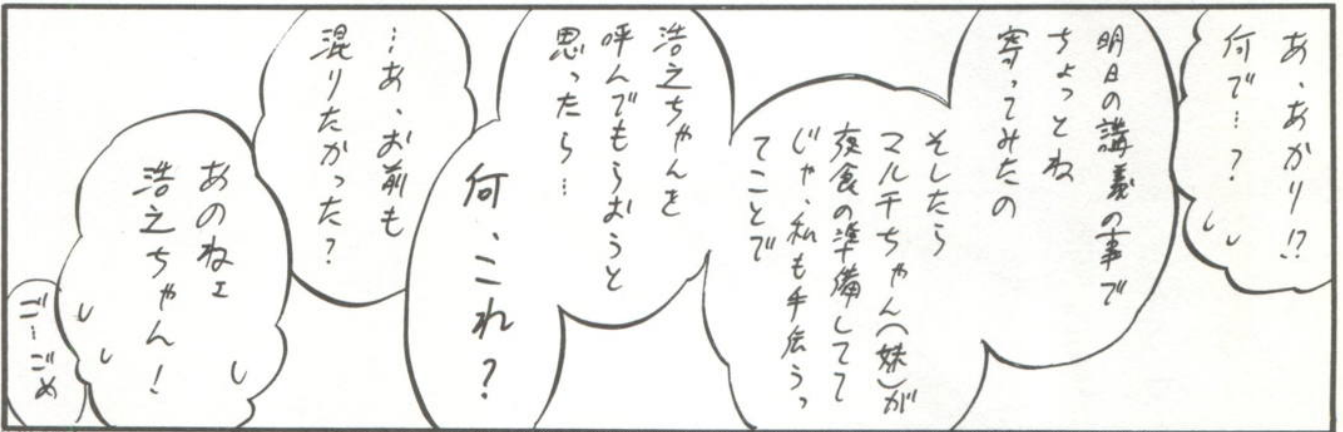 あ、あかり!?
何で…?
明日の講義の事で
ちょっとね
寄ってみたの
そしたら
マルチちゃん(妹)が
夜食の準備してて
じゃ、私も手伝うっ
てことで
浩之ちゃんを
呼んでもらおうと
思ったら…
何、これ?
…あ、お前も
混りたかった?
あのねェ
浩之ちゃん!
ご…ごめ